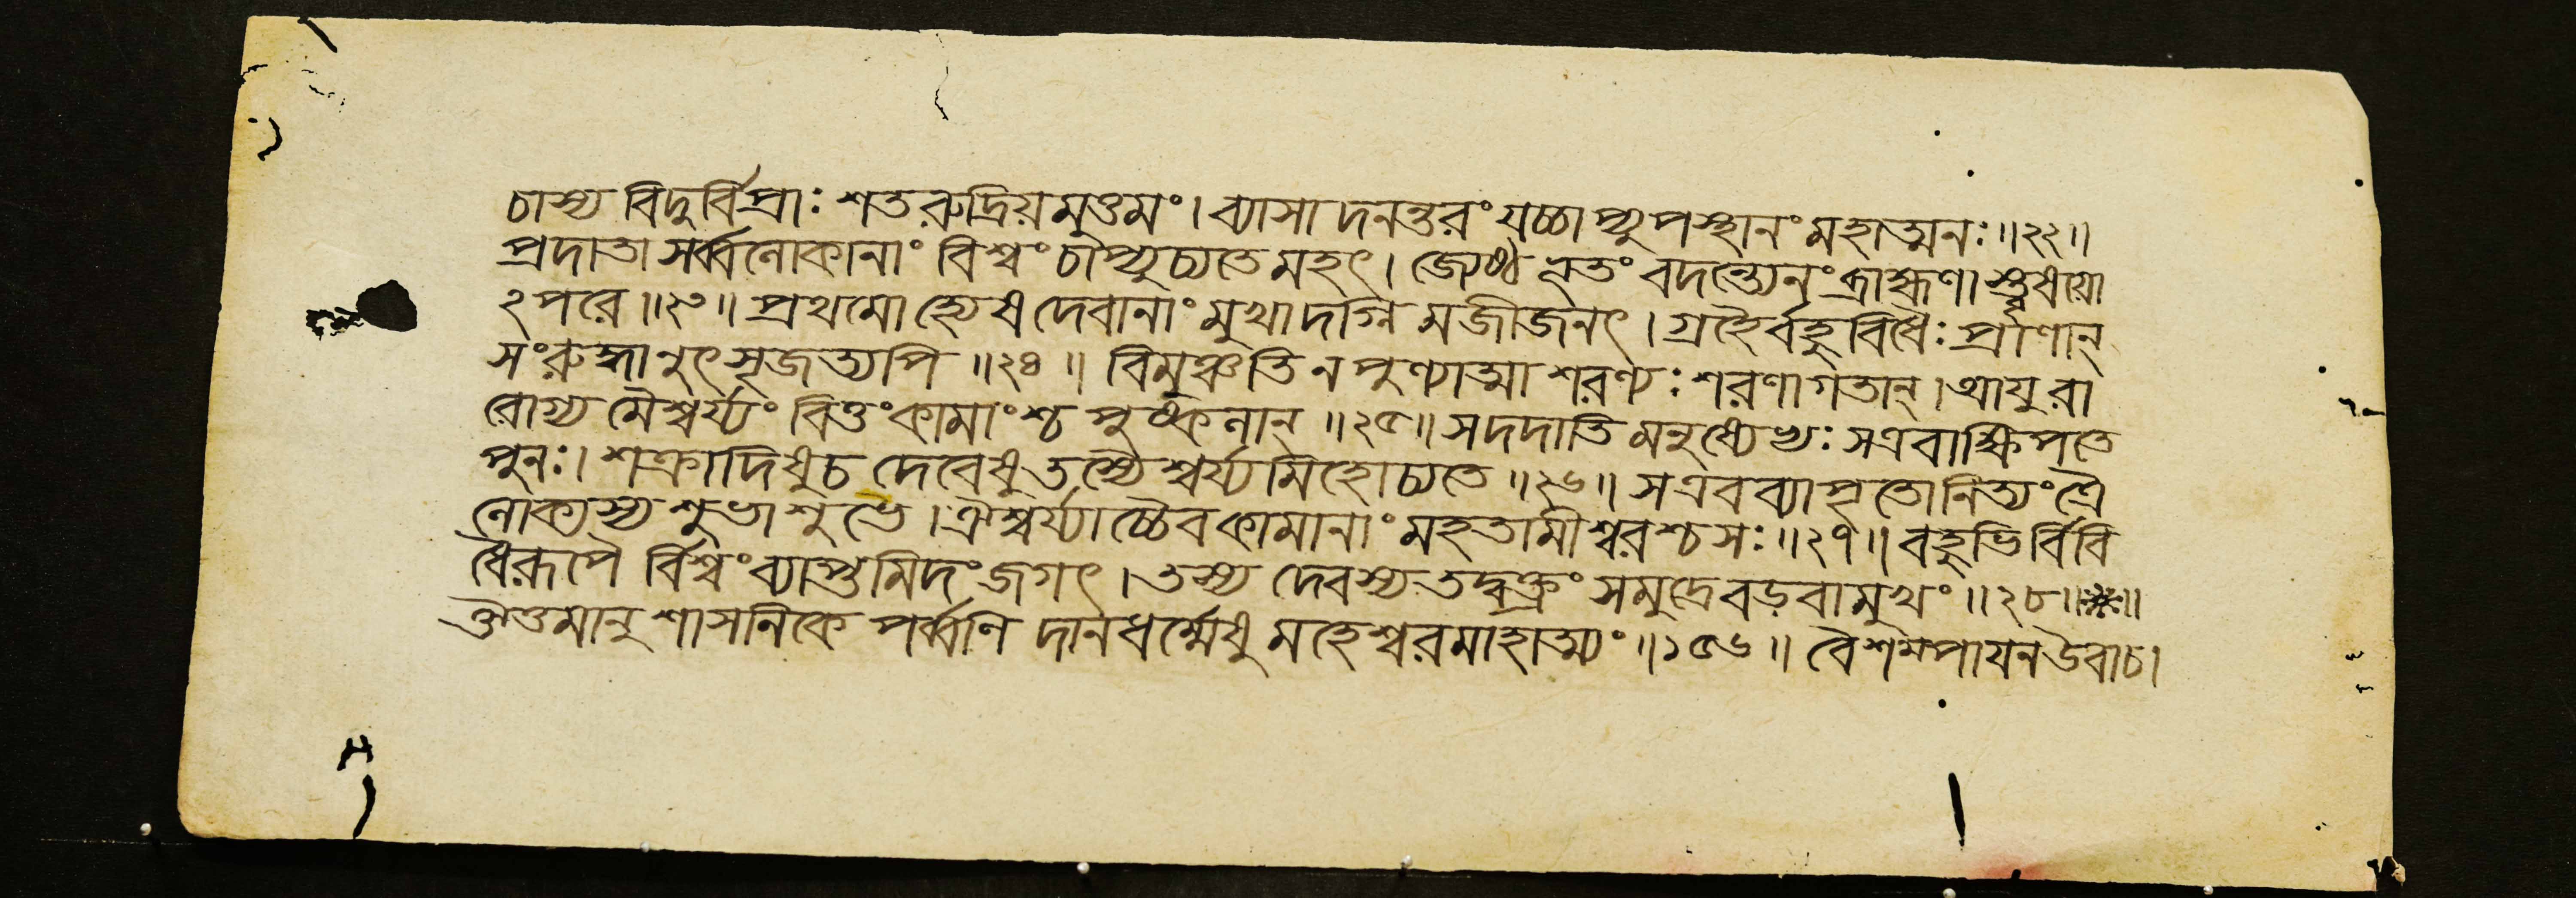 চাস্য বিদুর্বিপ্রাঃ শতরুদ্রিয়মুত্তমং। ব্যাসাদনন্তরং যচ্চাপ্যুপস্থানং মহাত্মনঃ॥২২॥
প্রদাতা সর্ব্বলোকানাং বিশ্বং চাপ্যুচ্যতে মহৎ। জ্যেষ্ঠভূতং বদন্ত্যেনং ব্রাহ্মণা ঋষয়ো
ঽপরে॥২৩॥ প্রথমো হ্যেষ দেবানাং মুখাদগ্নিমজীজনৎ। গ্রহৈর্বহুবিধৈঃ প্রাণান্
সংরুদ্ধানুৎসৃজত্যপি॥২৪॥ বিমুঞ্চতি ন পুণ্যাত্মা শরণ্যঃ শরণাগতান্। আয়ুরা
রোগ্যমৈশ্বর্য্যং বিত্তং কামাংশ্চ পুষ্কলান্॥২৫॥ স দদাতি মনুষ্যেভ্যঃ স এবাক্ষিপতে
পুনঃ। শক্রাদিষু চ দেবেষু তস্যৈশ্বর্য্যমিহোচ্যতে॥২৬॥ স এব ব্যাপৃতো নিত্যং ত্রৈ
লোক্যস্য শুভাশুভে। ঐশ্বর্য্যাচ্চৈব কামানাং মহতামীশ্বরশ্চ সঃ॥২৭॥ বহুভির্বিবি
ধৈরূপৈর্বিশ্বং ব্যাপ্তমিদং জগৎ। তস্য দেবস্য তদ্বক্ত্রং সমুদ্রে বড়বামুখং॥২৮॥※॥
ঔত্তমানুশাসনিকে পর্ব্বণি দানধর্ম্মেষু মহেশ্বরমাহাত্ম্যং॥১৫৬॥ বৈশম্পায়ন উবাচ।